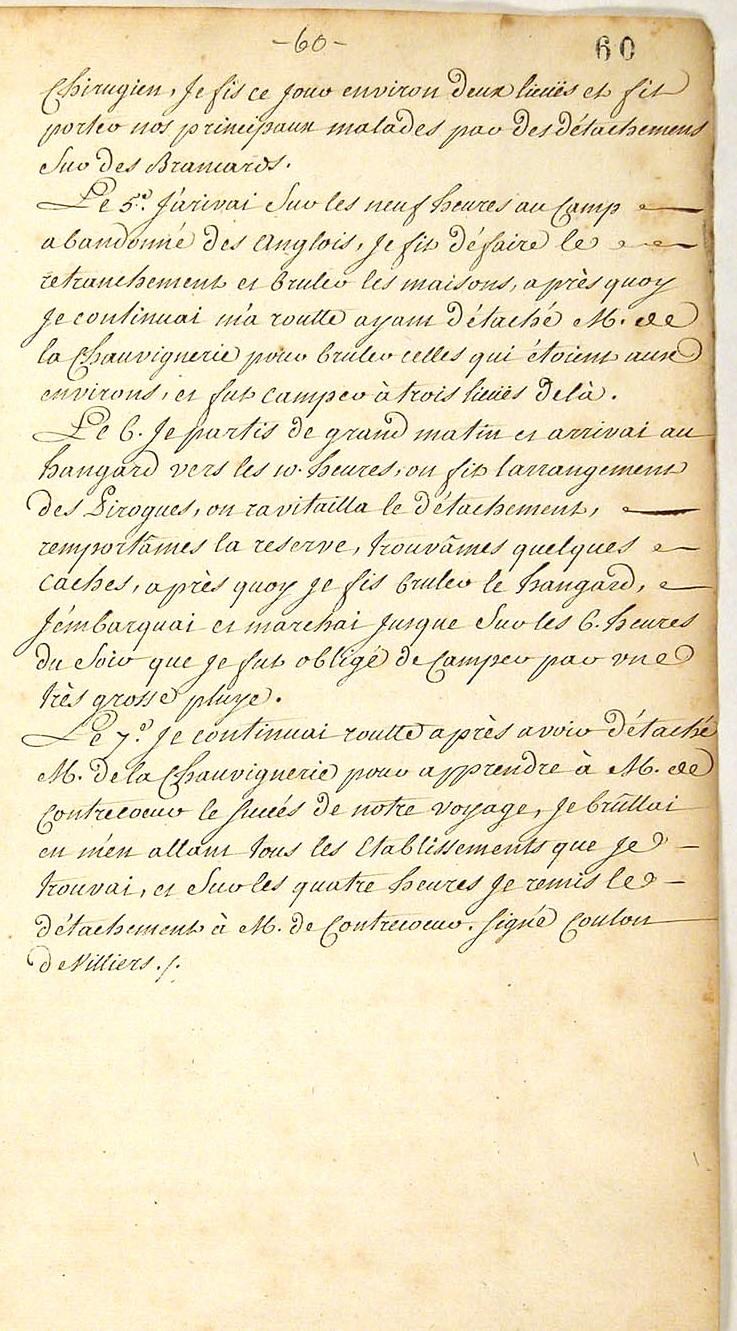 -60-
60
Chirugien, Je fis ce jour environ deux lieuës et fit
porter nos principaux malades par des détachemens
Sur des Brancards.
Le 5.e J'arivai Sur les neuf heures au Camp
abandonné des Anglois, Je fit défaire le
retranchement et bruler les maisons, après quoy
Je continuai ma routte ayant détaché M. de
la Chauvignerie pour bruler celles qui étoient aux
environs, et fut camper à trois lieuës delà.
Le 6. Je partis de grand matin et arrivai au
hangard vers les 10. heures, on fit l'arrangement
des Pirogues, on ravitailla le détachement,
remportâmes la reserve, trouvâmes quelques
caches, après quoy Je fis bruler le hangard,
J'émbarquai et marchai Jusque Sur les 6. heures
du Soir que Je fut obligé de Camper par une
très grosse pluye.
Le 7.e Je continuai routte après avoir détaché
M. de la Chauvignerie pour apprendre à M. de
Contrecoeur le succés de notre voyage, Je brûllai
en m'en allant tous les Etablissements que Je
trouvai, et Sur les quatre heures Je remis le
détachement à M. de Contrecoeur. signé Coulon
de Villiers ./.